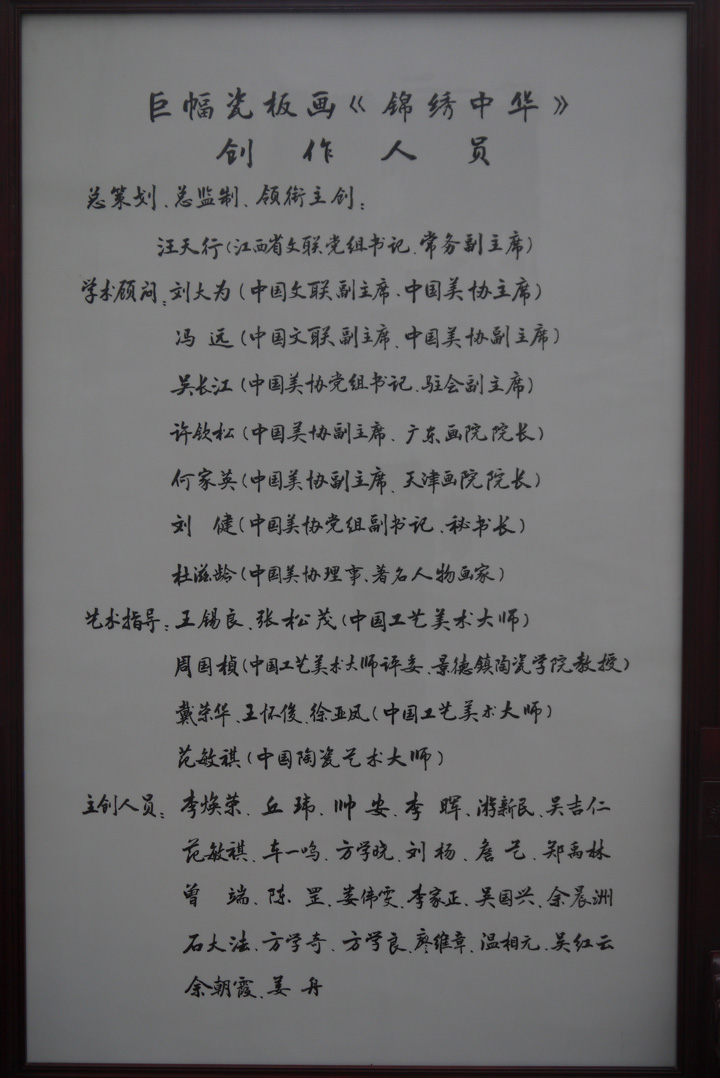 巨幅瓷板画《锦绣中华》
创作人员
总策划、总监制、领衔主创：
汪天行(江西省文联党组书记、常务副主席)
学术顾问：刘大为(中国文联副主席、中国美协主席)
冯远(中国文联副主席、中国美协副主席)
吴长江(中国美协党组书记、驻会副主席)
许钦松(中国美协副主席、广东画院院长)
何家英(中国美协副主席、天津画院院长)
刘健(中国美协党组副书记、秘书长)
杜滋龄(中国美协理事、著名人物画家)
艺术指导：王锡良、张松茂(中国工艺美术大师)
周国桢(中国工艺美术大师评委、景德镇陶瓷学院教授)
戴荣华、王怀俊、徐亚凤(中国工艺美术大师)
范敏祺(中国陶瓷艺术大师)
主创人员：李焕荣、丘玮、帅安、李晖、游新民、吴吉仁
范敏祺、车一鸣、方学晓、刘杨、詹艺、郑禹林
曾端、陈罡、娄伟雯、李家正、吴国兴、余晨洲
石大法、方学奇、方学良、廖维章、温相元、吴红云
余朝霞、姜丹